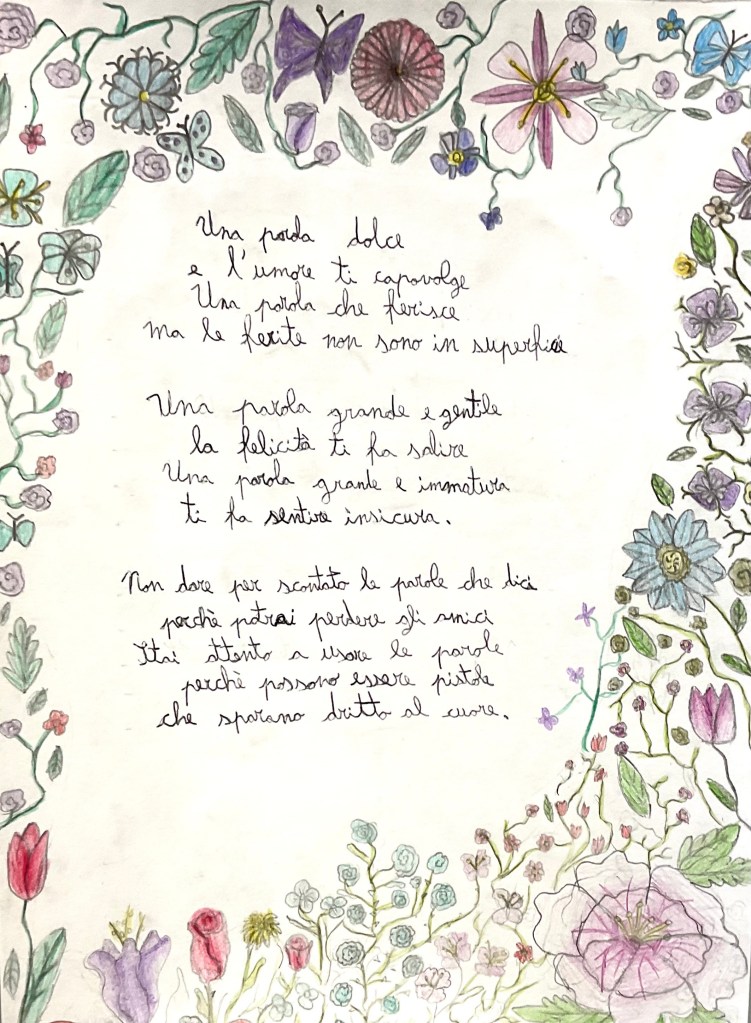 Una parola dolce
e l'umore ti capovolge
Una parola che ferisce
ma le ferite non sono in superficie
Una parola grande e gentile
la felicità ti fa salire
Una parola grande e immatura
ti fa sentire insicura.
Non dare per scontato le parole che dici
perchè potrai perdere gli amici
Stai attento a usare le parole
perchè possono essere pistole
che sparano dritto al cuore.